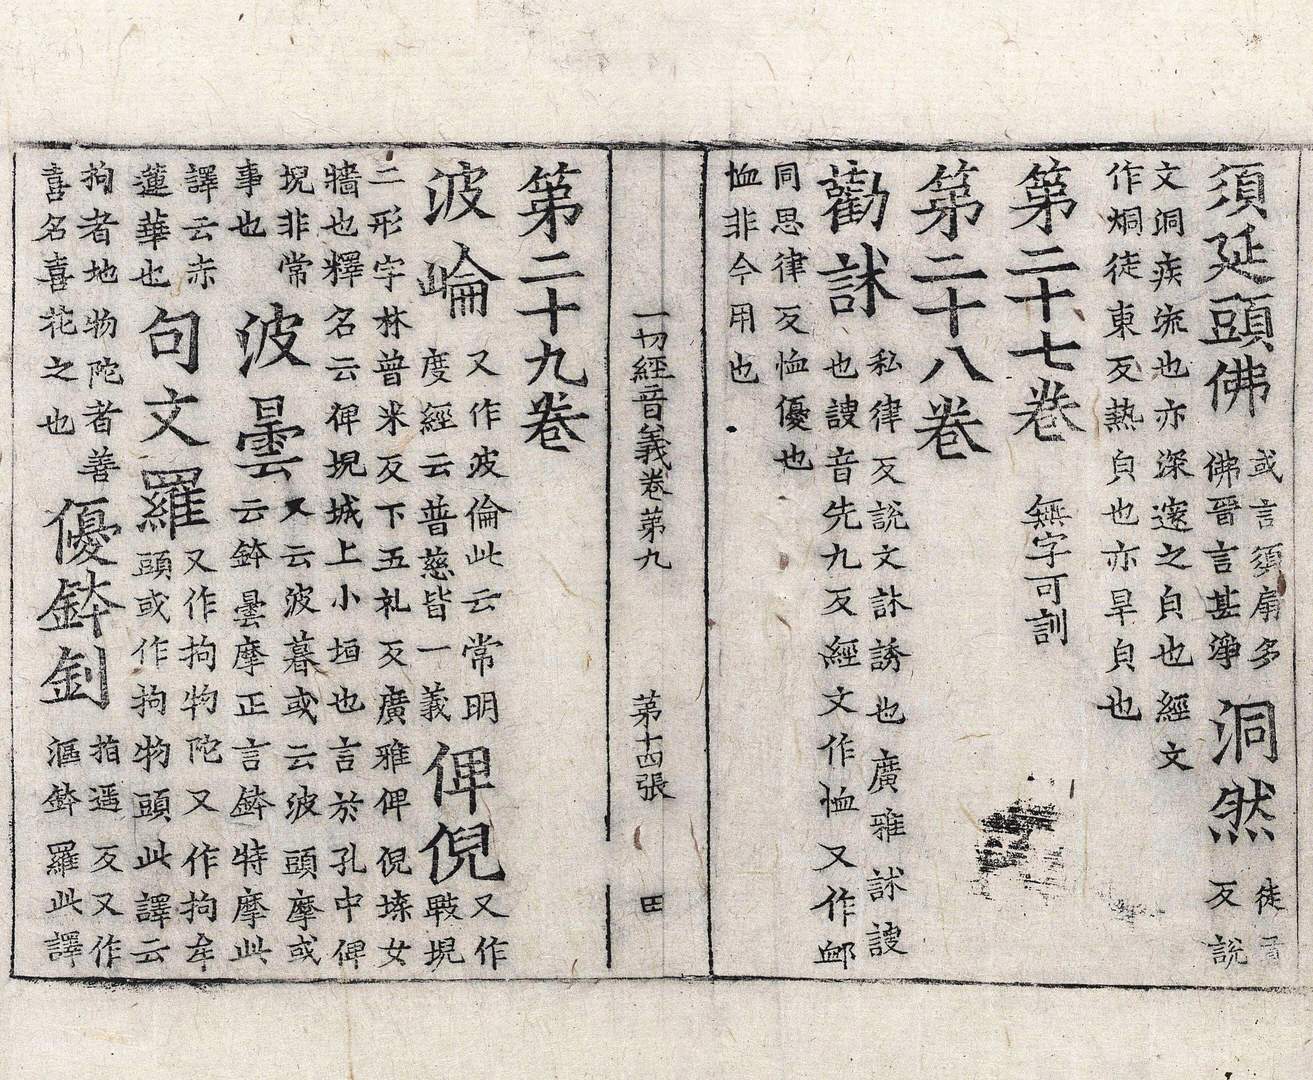 須延頭佛 或言須扇多佛晉言甚淨 洞然 徒貢反說
文洞疾流也亦深邃之皃也經文作烔徒東反熱皃也亦旱皃也
第二十七卷 無字可訓
第二十八卷
勸訹 私律反說文訹誘也廣雅訹謏也謏音先九反經文作恤又作䘏
同思律反恤優也恤非今用也
一切經音義卷第九 第十四張 田
第二十九卷
波崘 又作波倫此云常明度經云普慈皆一義 俾倪 又作㪏堄
二形字林普米反下五礼反廣雅俾倪堞女牆也釋名云俾堄城上小垣也言於孔中俾
堄非常事也 波曇 又云波暮或云波頭摩或云鉢曇摩正言鉢特摩此
譯云赤蓮華也 句文羅 又作拘物陀又作拘牟頭或作拘物頭此譯云
拘者地物陀者善喜名喜花之也 優鉢釗 指遥反又作漚鉢羅此譯